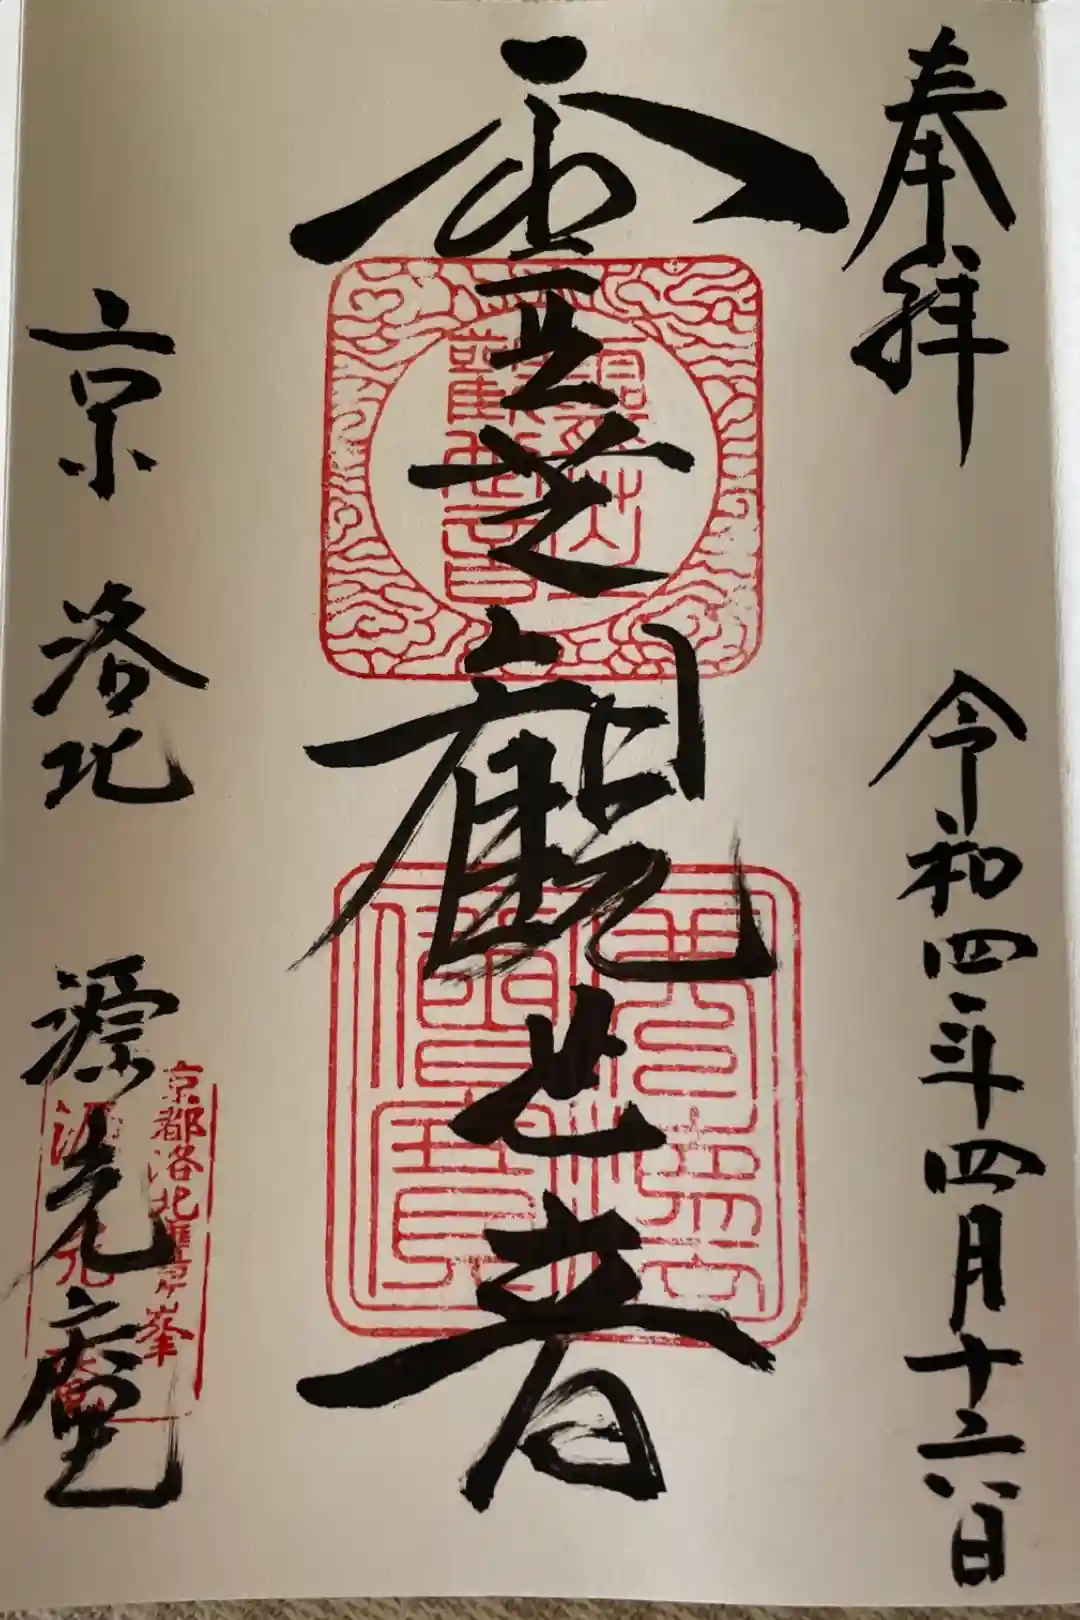 奉拝
令和四年四月十六日
霊芝観世音
霊芝
観世音
京 洛北 源光庵
京都洛北鷹峯
源光庵